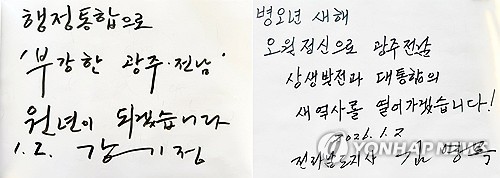 행정통합으로
'부강한 광주·전남'
원년이 되겠습니다
1.2. 강기정
병오년 새해
오월정신으로 광주전남
상생발전과 대통합의
새역사를 열어가겠습니다!
2026. 1. 2
전라남도지사 김영록
YONHAP NEWS